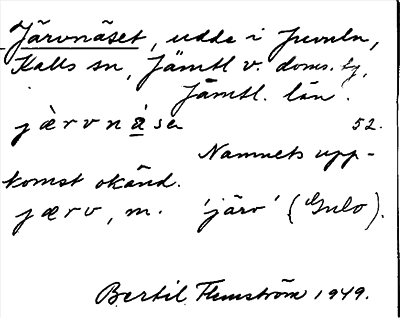 Järvnäset, udde i Juvuln,
Kalls sn, Jämtl v. doms. tg,
Jämtl. län.
jærvnäsə 52.
Namnets upp-
komst okänd.
jærv, m. 'järv' (Gulo).
Bertil Flemström 1949.